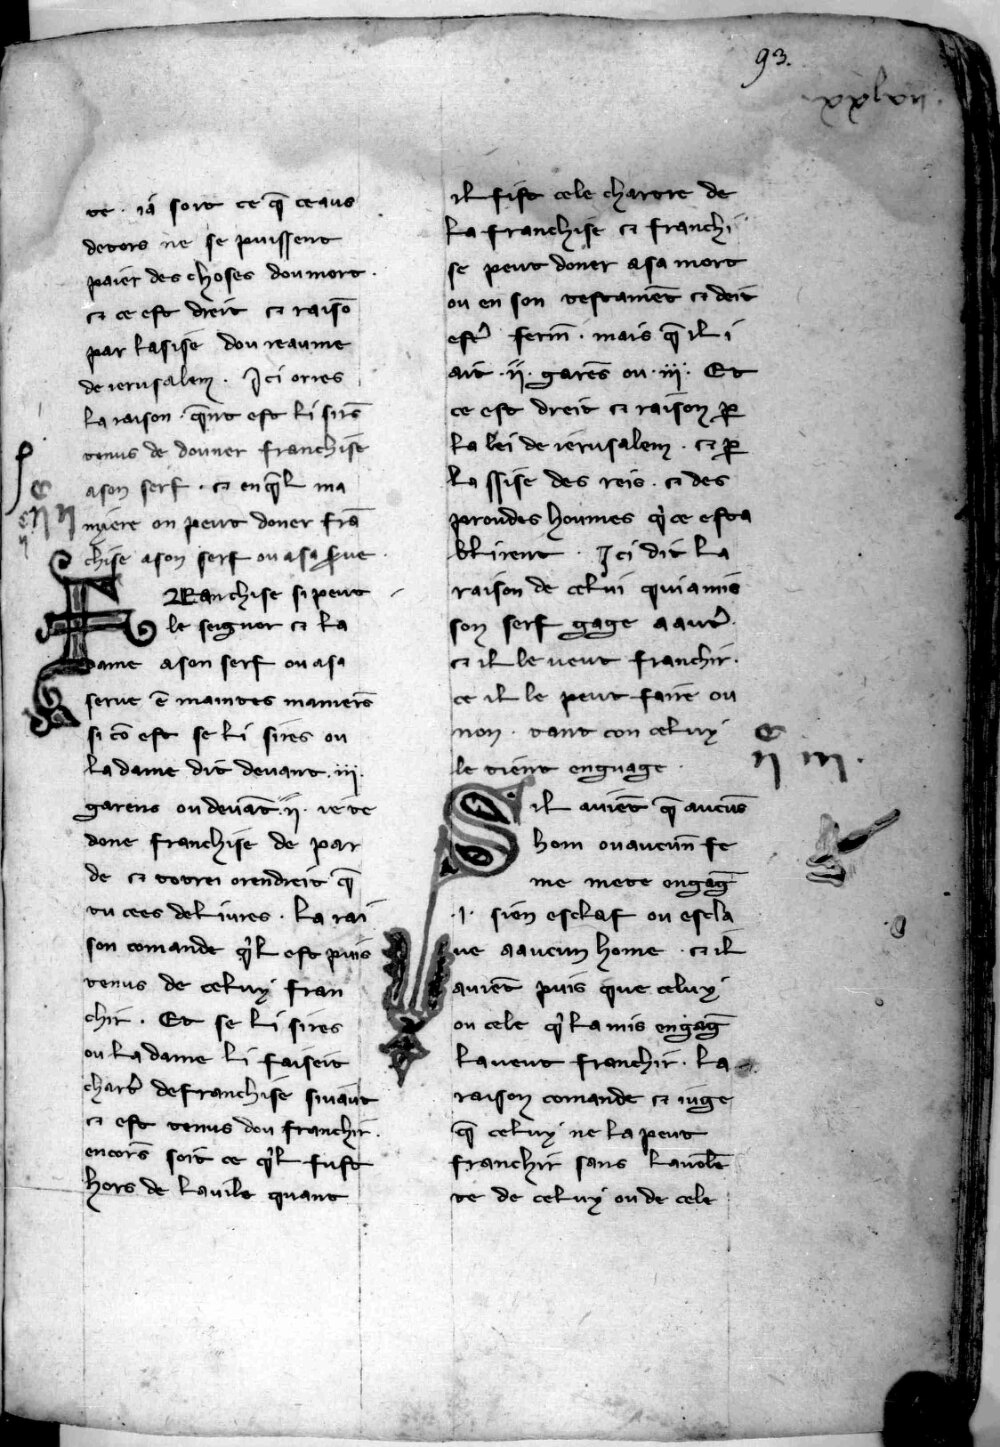 93.
xxlvii.
te. ia sort ce q̃ ceaus
detors ne se puissent
paier des choses dou mort.
⁊ ce est dreit ⁊ raisõ
par lasise dou reaume
de ierusalem. Ici orres
la raison. q̃nt est li sirẽs
tenus de douner franchise
a son serf. ⁊ en q̃l ma
niere on peut doner frã
chise a son serf ou a sa s̃rve.
FRanchise si peut
le seignor ⁊ la
dame a son serf ou a sa
serve ẽ maintes manierẽs
si cõ est se li sires ou
la dame dit devant .iii.
garens ou devãt .ii. ie te
done franchise de par
de ⁊ totrei orendreit q̃
tu cees delivres. la rai
son comande q̃l est puis
tenus de celuy fran
chir. Et se li sires
ou la dame li faiseit
chart̃ de franchise sivãnt
⁊ est tenus dou franchir.
encorẽs soit ce q̃l fust
hors de la vile quant
il fist cele chartre de
la franchise ⁊ franchi
se peut doner a sa mort
ou en son testamẽt ⁊ deit
est̃ ferm̃. mais q̃ il i
ait .ii. garẽs ou .iii. Et
ce est dreit ⁊ raison ꝑ
la lei de ierusalem. ⁊ ꝑ
la ssise des reis. ⁊ des
proudes houmes q̃ ce esta
blirent. Ici dit la
raison de celui qui a mis
son serf gage a aut̃.
⁊ il le veut franchir.
ce il le peut faire ou
non. tant con celuy
le tient en guage.
Sil aviẽt q̃ aucũs
hom ou aucũn fe
me mete en gag̃
.i. sien esclaf ou escla
ve a aucun home. ⁊ il
aviẽt puis que celuy
ou cele q̃ la mis en gag̃
la veut franchir. la
raison comande ⁊ iuge
q̃ celuy ne la peut
franchir sans la volẽ
te de celuy ou de cele